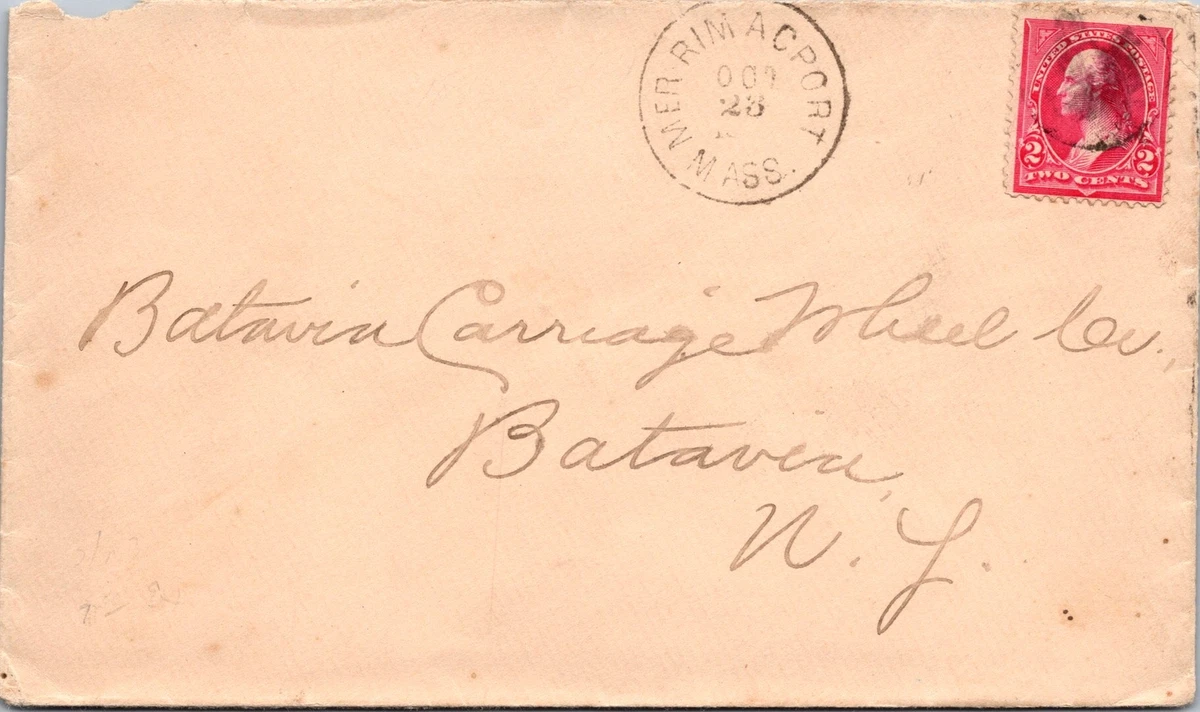 MERRIMACPORT
23
MASS.
UNITED STATES POSTAGE
2 2
TWO CENTS
Batavia Carriage Wheel Co.,
Batavia,
N. Y.